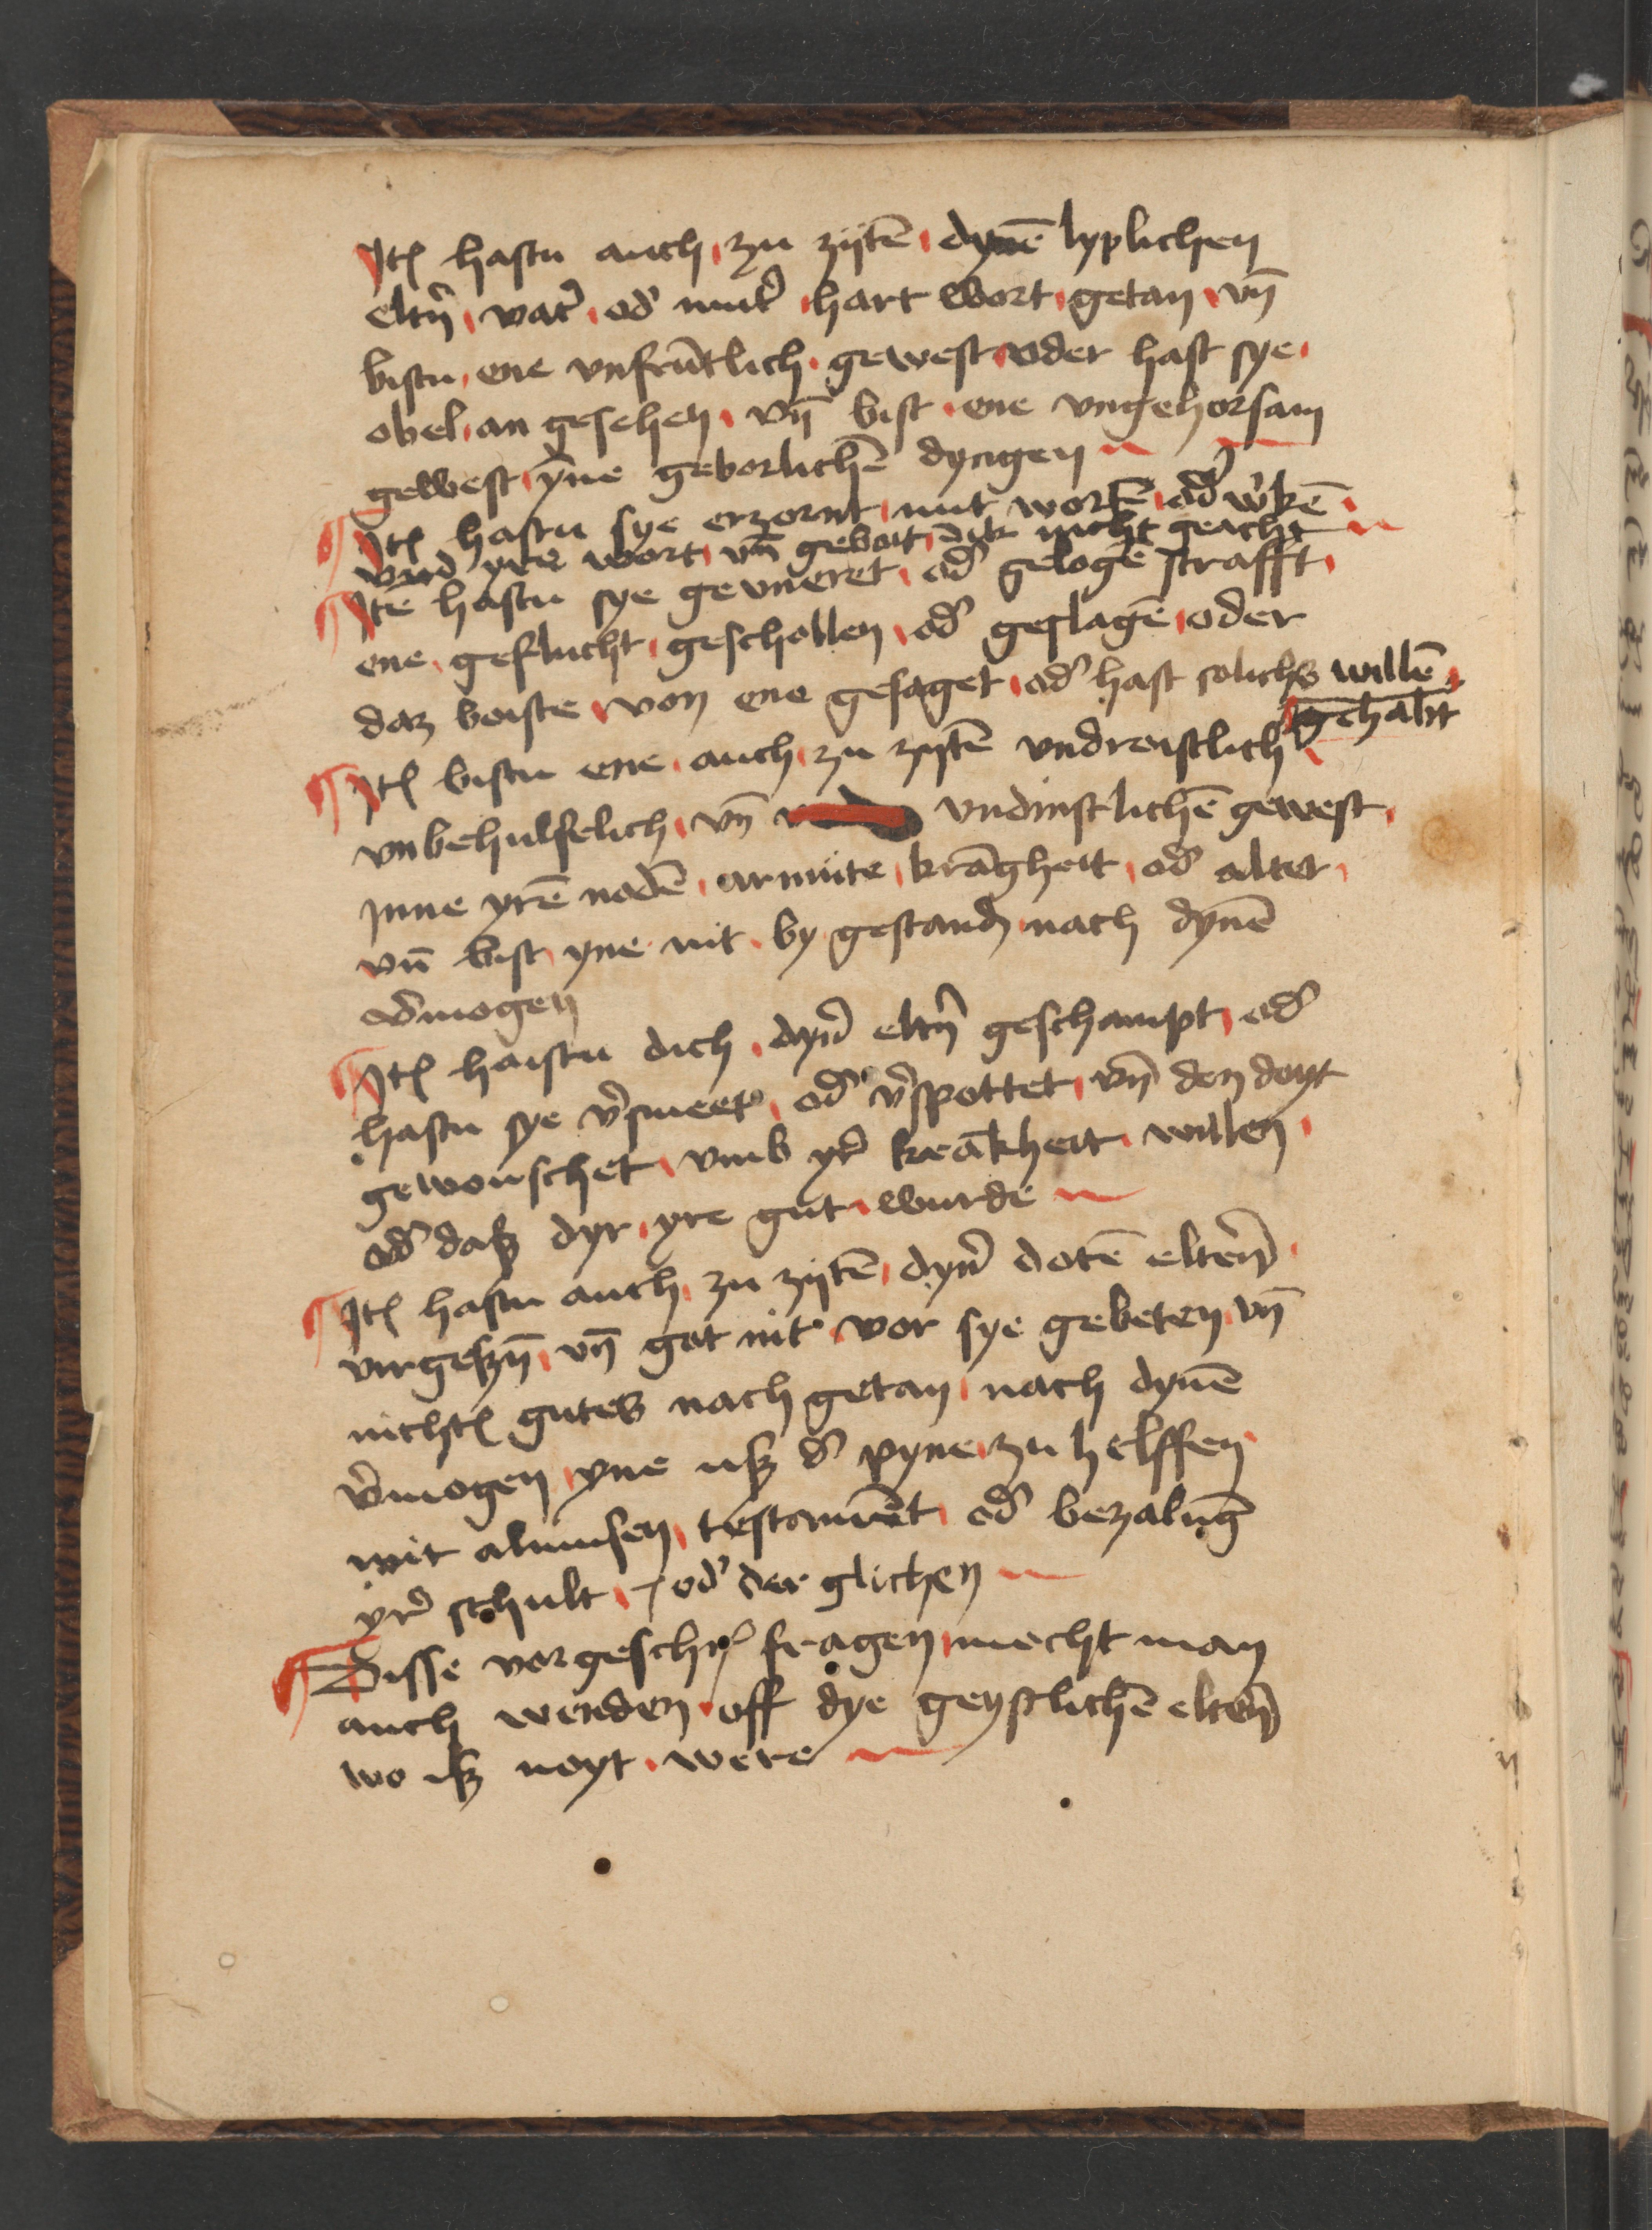 Itꝭ hastu auch zu zijtē dynē lyplichen
eltn̄ vat̓ od̓ mut̓ hart wort getan vn̄
bistu ene vnfrūtlich gewest oder hast sye
obel an gesehen vn̄ bist ene vngehorsam
gewest yne geborlichē dyngen
Itꝭ hastu sye erzornt mit wortē od̓ w̓kē
vnd yre wort vn̄ geboit dik nicht geacht
Itē hastu sye gevneret od̓ gelogē strafft
ene geflucht gescholden od̓ geslagē oder
daz boiste von ene gesaget od̓ hast solichs willē
gehabt
Itꝭ bistu ene auch zu zijtē vndroistlich
vnbehulfelich vn̄ vndinstlichē gewest
Inne yrē nodē armūte krāgheit od̓ alter
vn̄ bist yne nit by gestand̄ nach dynē
v̓mogen
Itꝭ haistu dich dyn̓ eltn̄ geschampt od̓
hastu sye v̓smeet od̓ v̓spottet vn̄ den doyt
gewonschet vmb yr̓ krākheit willen
od̓ daß dyr yre gut wurde
Itꝭ hastu auch zu zijtē dyn̓ dotē eltern̄
virgeßn̄ vn̄ got nit vor sye gebeten vn̄
nichtꝭ gutes nach getan nach dynē
v̓mogen yne uß d̓ pyne zu helffen
mit almusen testamēt od̓ bezalūg
yr̓ schult od̓ der glichen
Disse vorgeschr̓ fragen mecht man
auch wenden off dye geystlichē eltern̄
wo iß noyt were